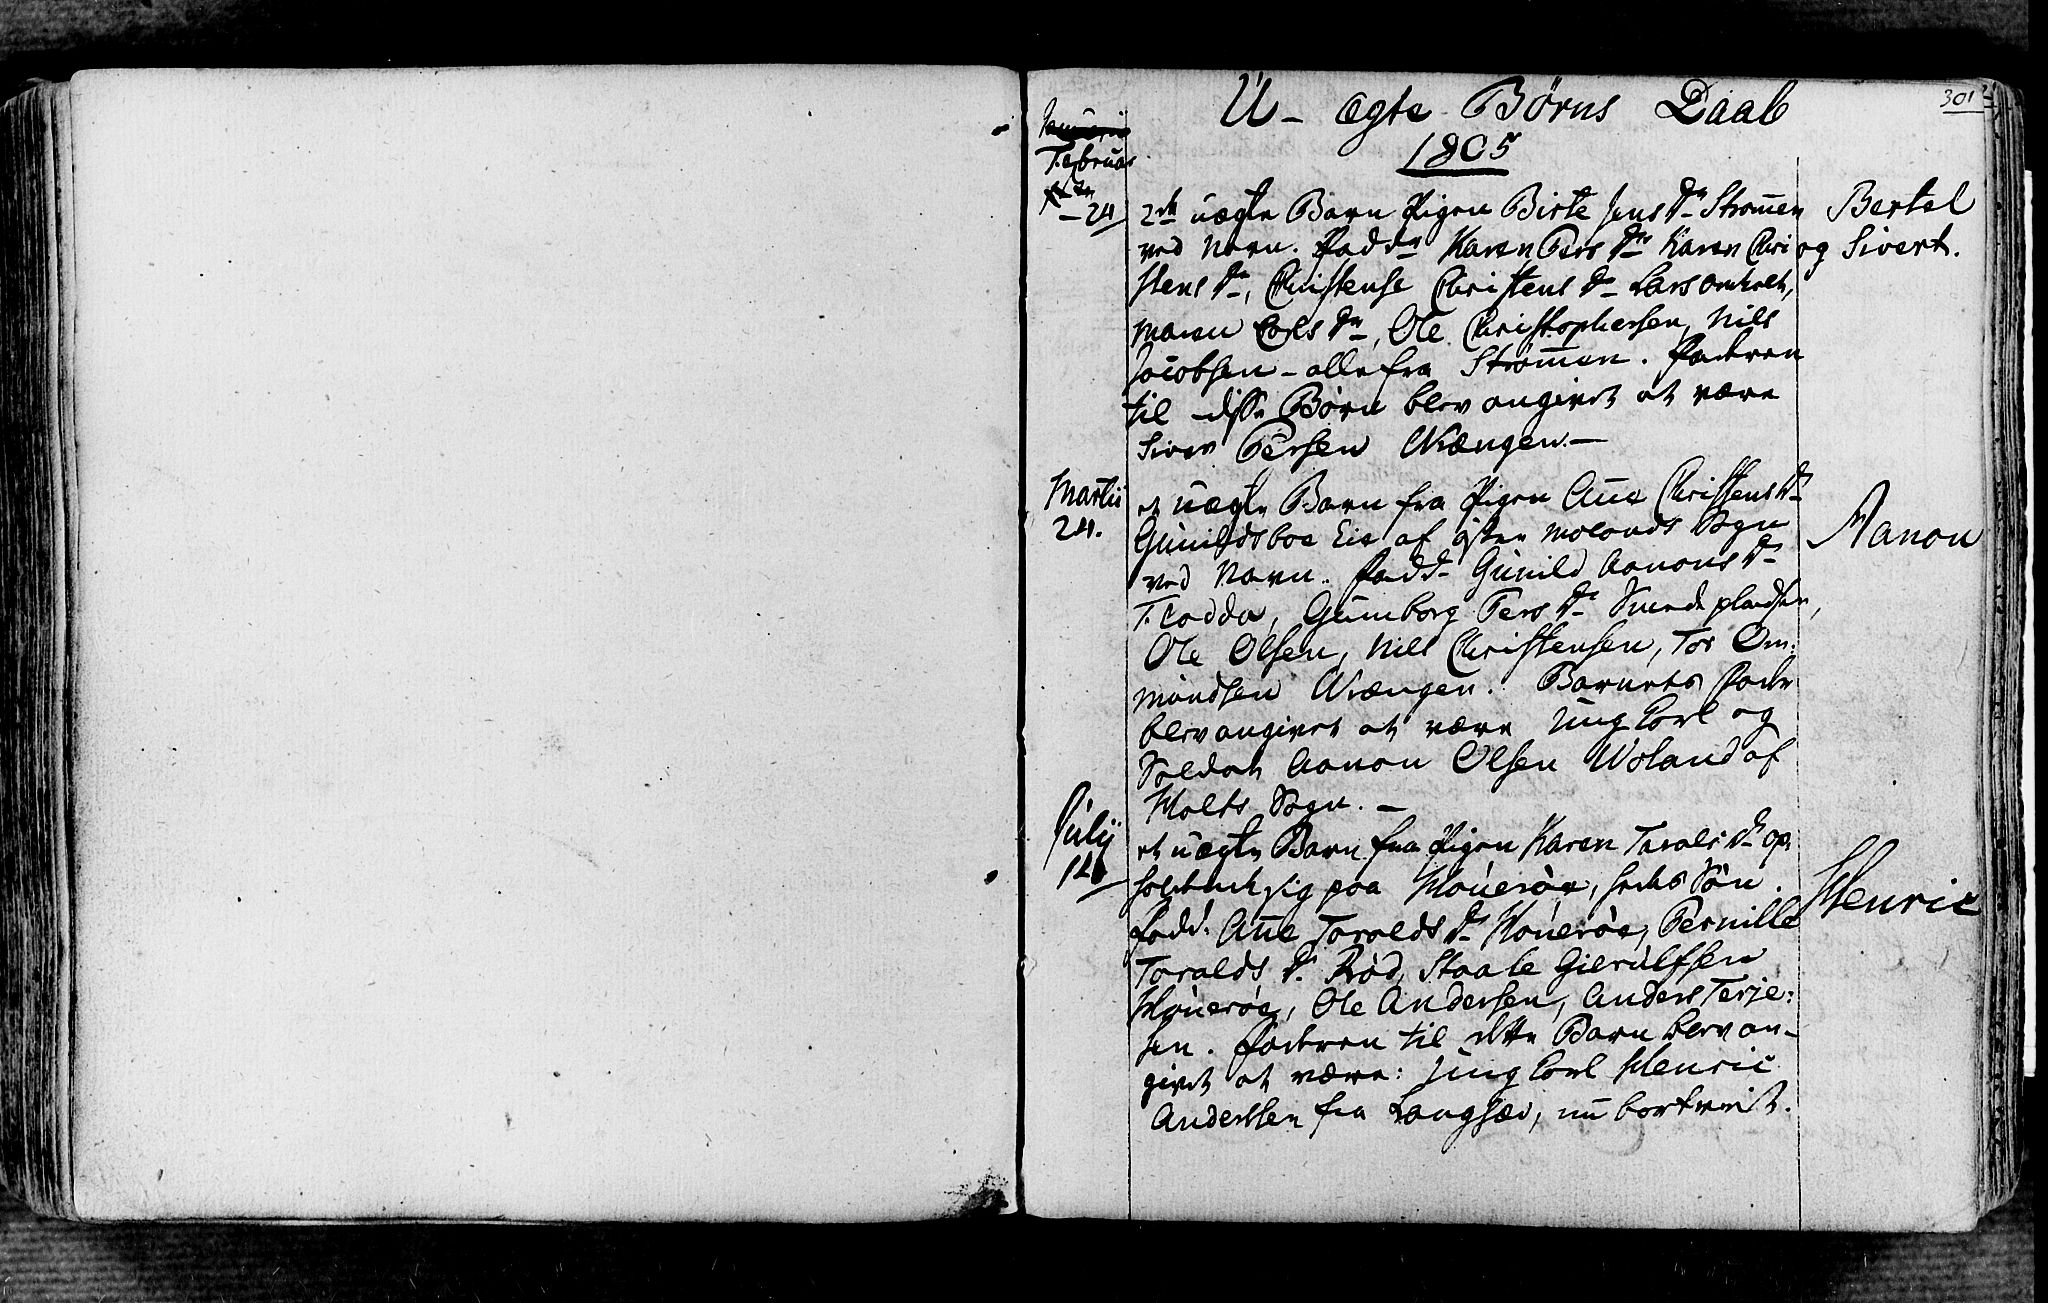 301
U- ægte Børns Daab
1805
Februar
- 24
2de uægte Børn Pigen Birte Jens Dr Strømen
ved Navn. Fadd: Karen Pers Dr Karen Chri
stens Dr, Christense Christens Dr Lars
Maren Carls Dr, Ole Christophersen, Nils
Jacobsen - alle fra Strømen. Faderen
til disse Børn blev angivet at være
Siver Persen Wrængen. -
Bertel
og Sivert.
Martii
24.
et uægte Barn fra Pigen Ane Christens Dr
Gunildsboe Eie af Østre Molands Sogn
ved Navn. Fadd. Gunild Aanons Dr
Fladda, Gunborg Pers Dr Smedsplandsen,
Ole Olsen, Nils Christensen, Tor Om:
mundsen Wrængen. Barnets Fader
blev angivet at være ung Carl og
Soldat Aanon Olsen Woland af
Holts Sogn. -
Aanon
Julii
et uægte Barn fra Pigen Karen Taralds Dr op:
holdende sig paa Houerøe, hendes Søn.
Fadd: Ane Taralds Dr Houerøe, Pernille
Taralds Dr Rød, Staale Gierulfsen
Houerøe, Ole Andersen, Anders Terje:
sen. Faderen til dette Barn blev an-
givet at være: ung Carl Henric
Andersen fra Langsæe, nu bortreist.
Henric